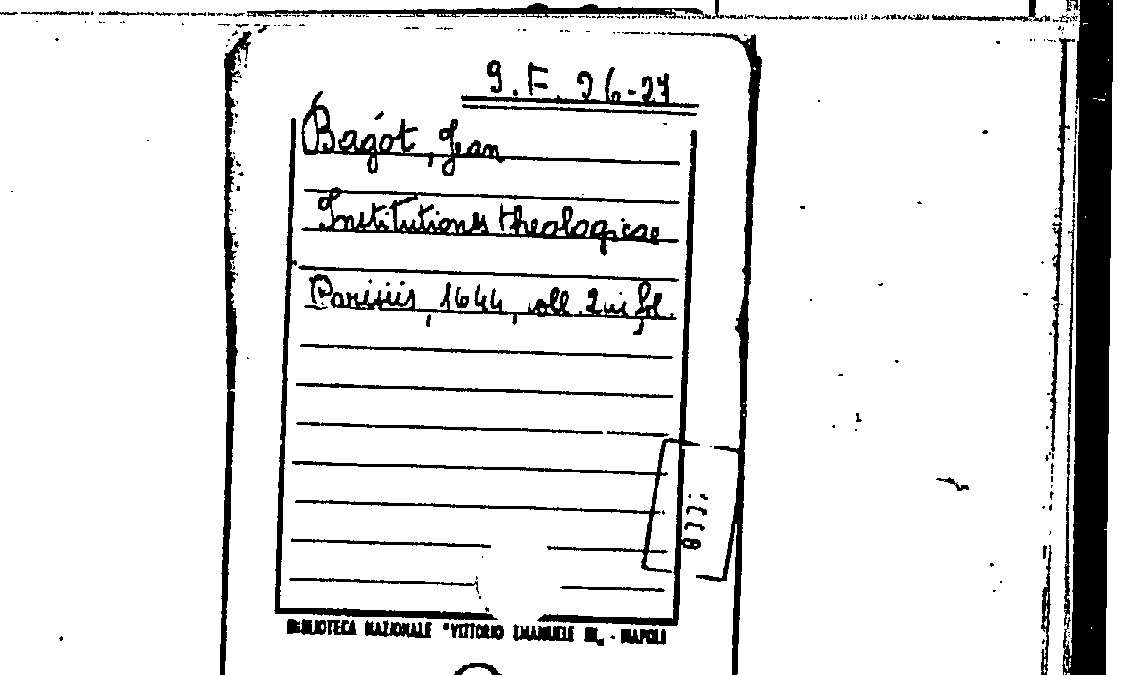 9.F.26-27
Bagót, Jean
Institutiones theologicae
Parisiis, 1644, voll. 2 in fol.
BIBLIOTECA NAZIONALE "VITTORIO EMANUELE III„ - NAPOLI